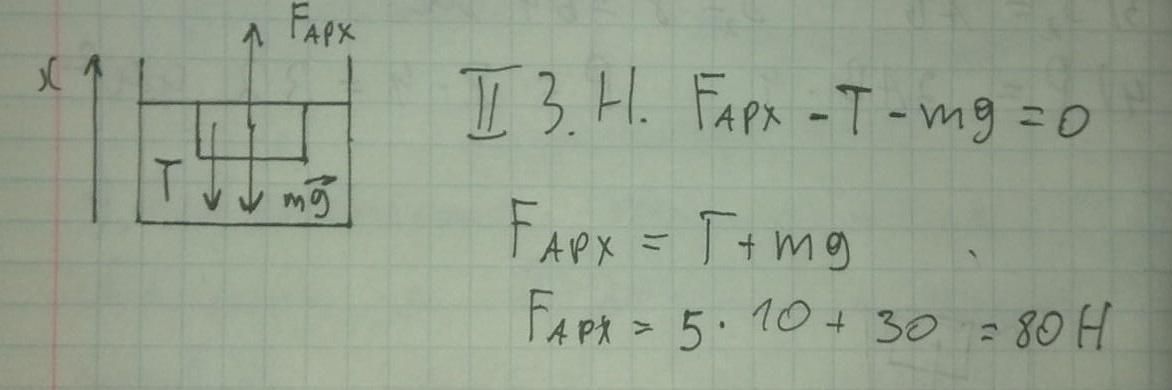 F_АРХ
x
II З.Н. F_АРХ - T - mg = 0
T
mg⃗
F_АРХ = T + mg
F_АРХ = 5 · 10 + 30 = 80 Н